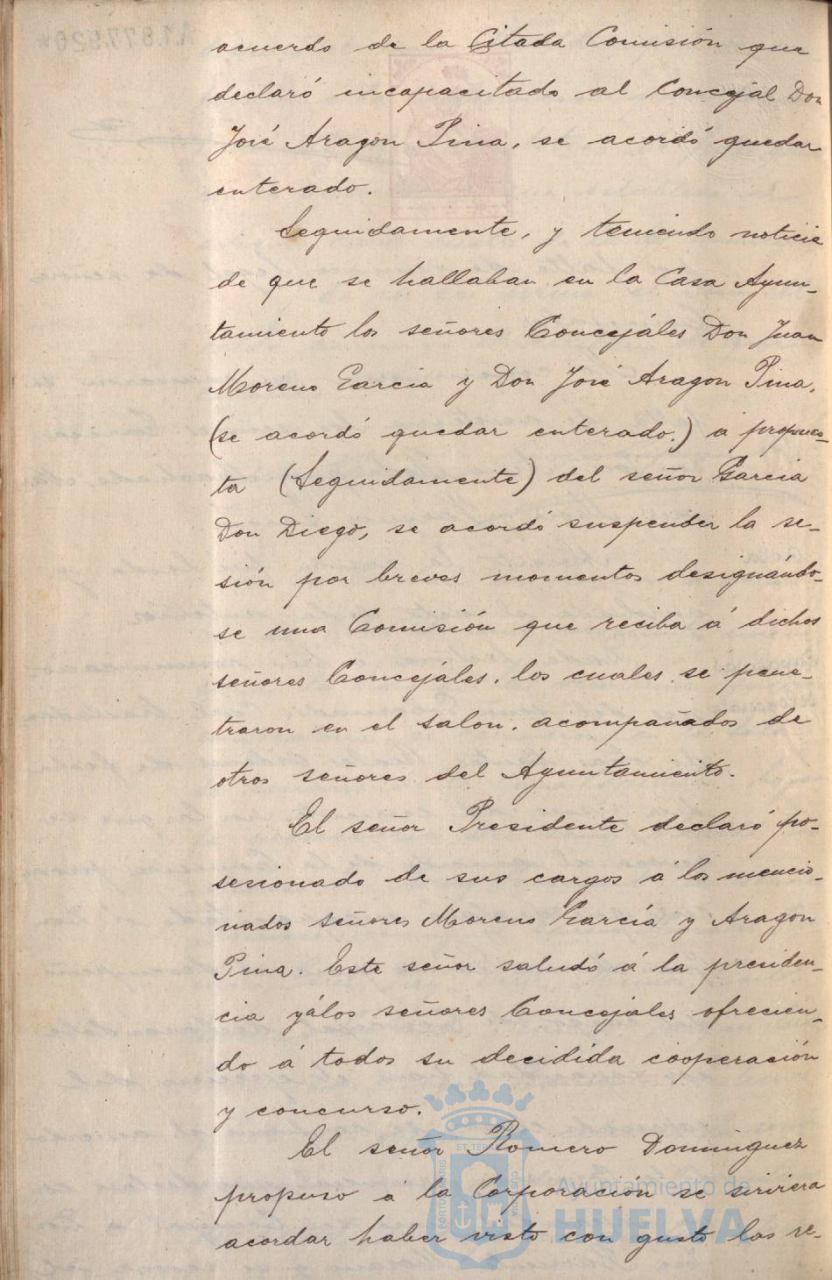 acuerdo de la Citada Comisión que
declaró incapacitado al Concejal Don
José Aragon Pina, se acordó quedar
enterado.
Seguidamente, y teniendo noticia
de que se hallaban en la Casa Ayun-
tamiento los señores Concejáles Don Juan
Moreno Garcia y Don José Aragon Pina,
(se acordó quedar enterado.) a propues-
ta (Seguidamente) del señor Garcia
Don Diego, se acordó suspender la se-
sión por breves momentos designándo-
se una Comisión que reciba á dichos
señores Concejáles, los cuales se pene-
traron en el salon, acompañados de
otros señores del Ayuntamiento.
El señor Presidente declaró po-
sesionado de sus cargos á los mencio-
nados señores Moreno García y Aragon
Pina. Este señor saludó á la presiden-
cia y á los señores Concejáles ofrecien-
do á todos su decidida cooperación
y concurso.
El señor Romero Dominguez
propuso á la Corporación se sirviera
acordar haber visto con gusto las re-
Ayuntamiento de
HUELVA